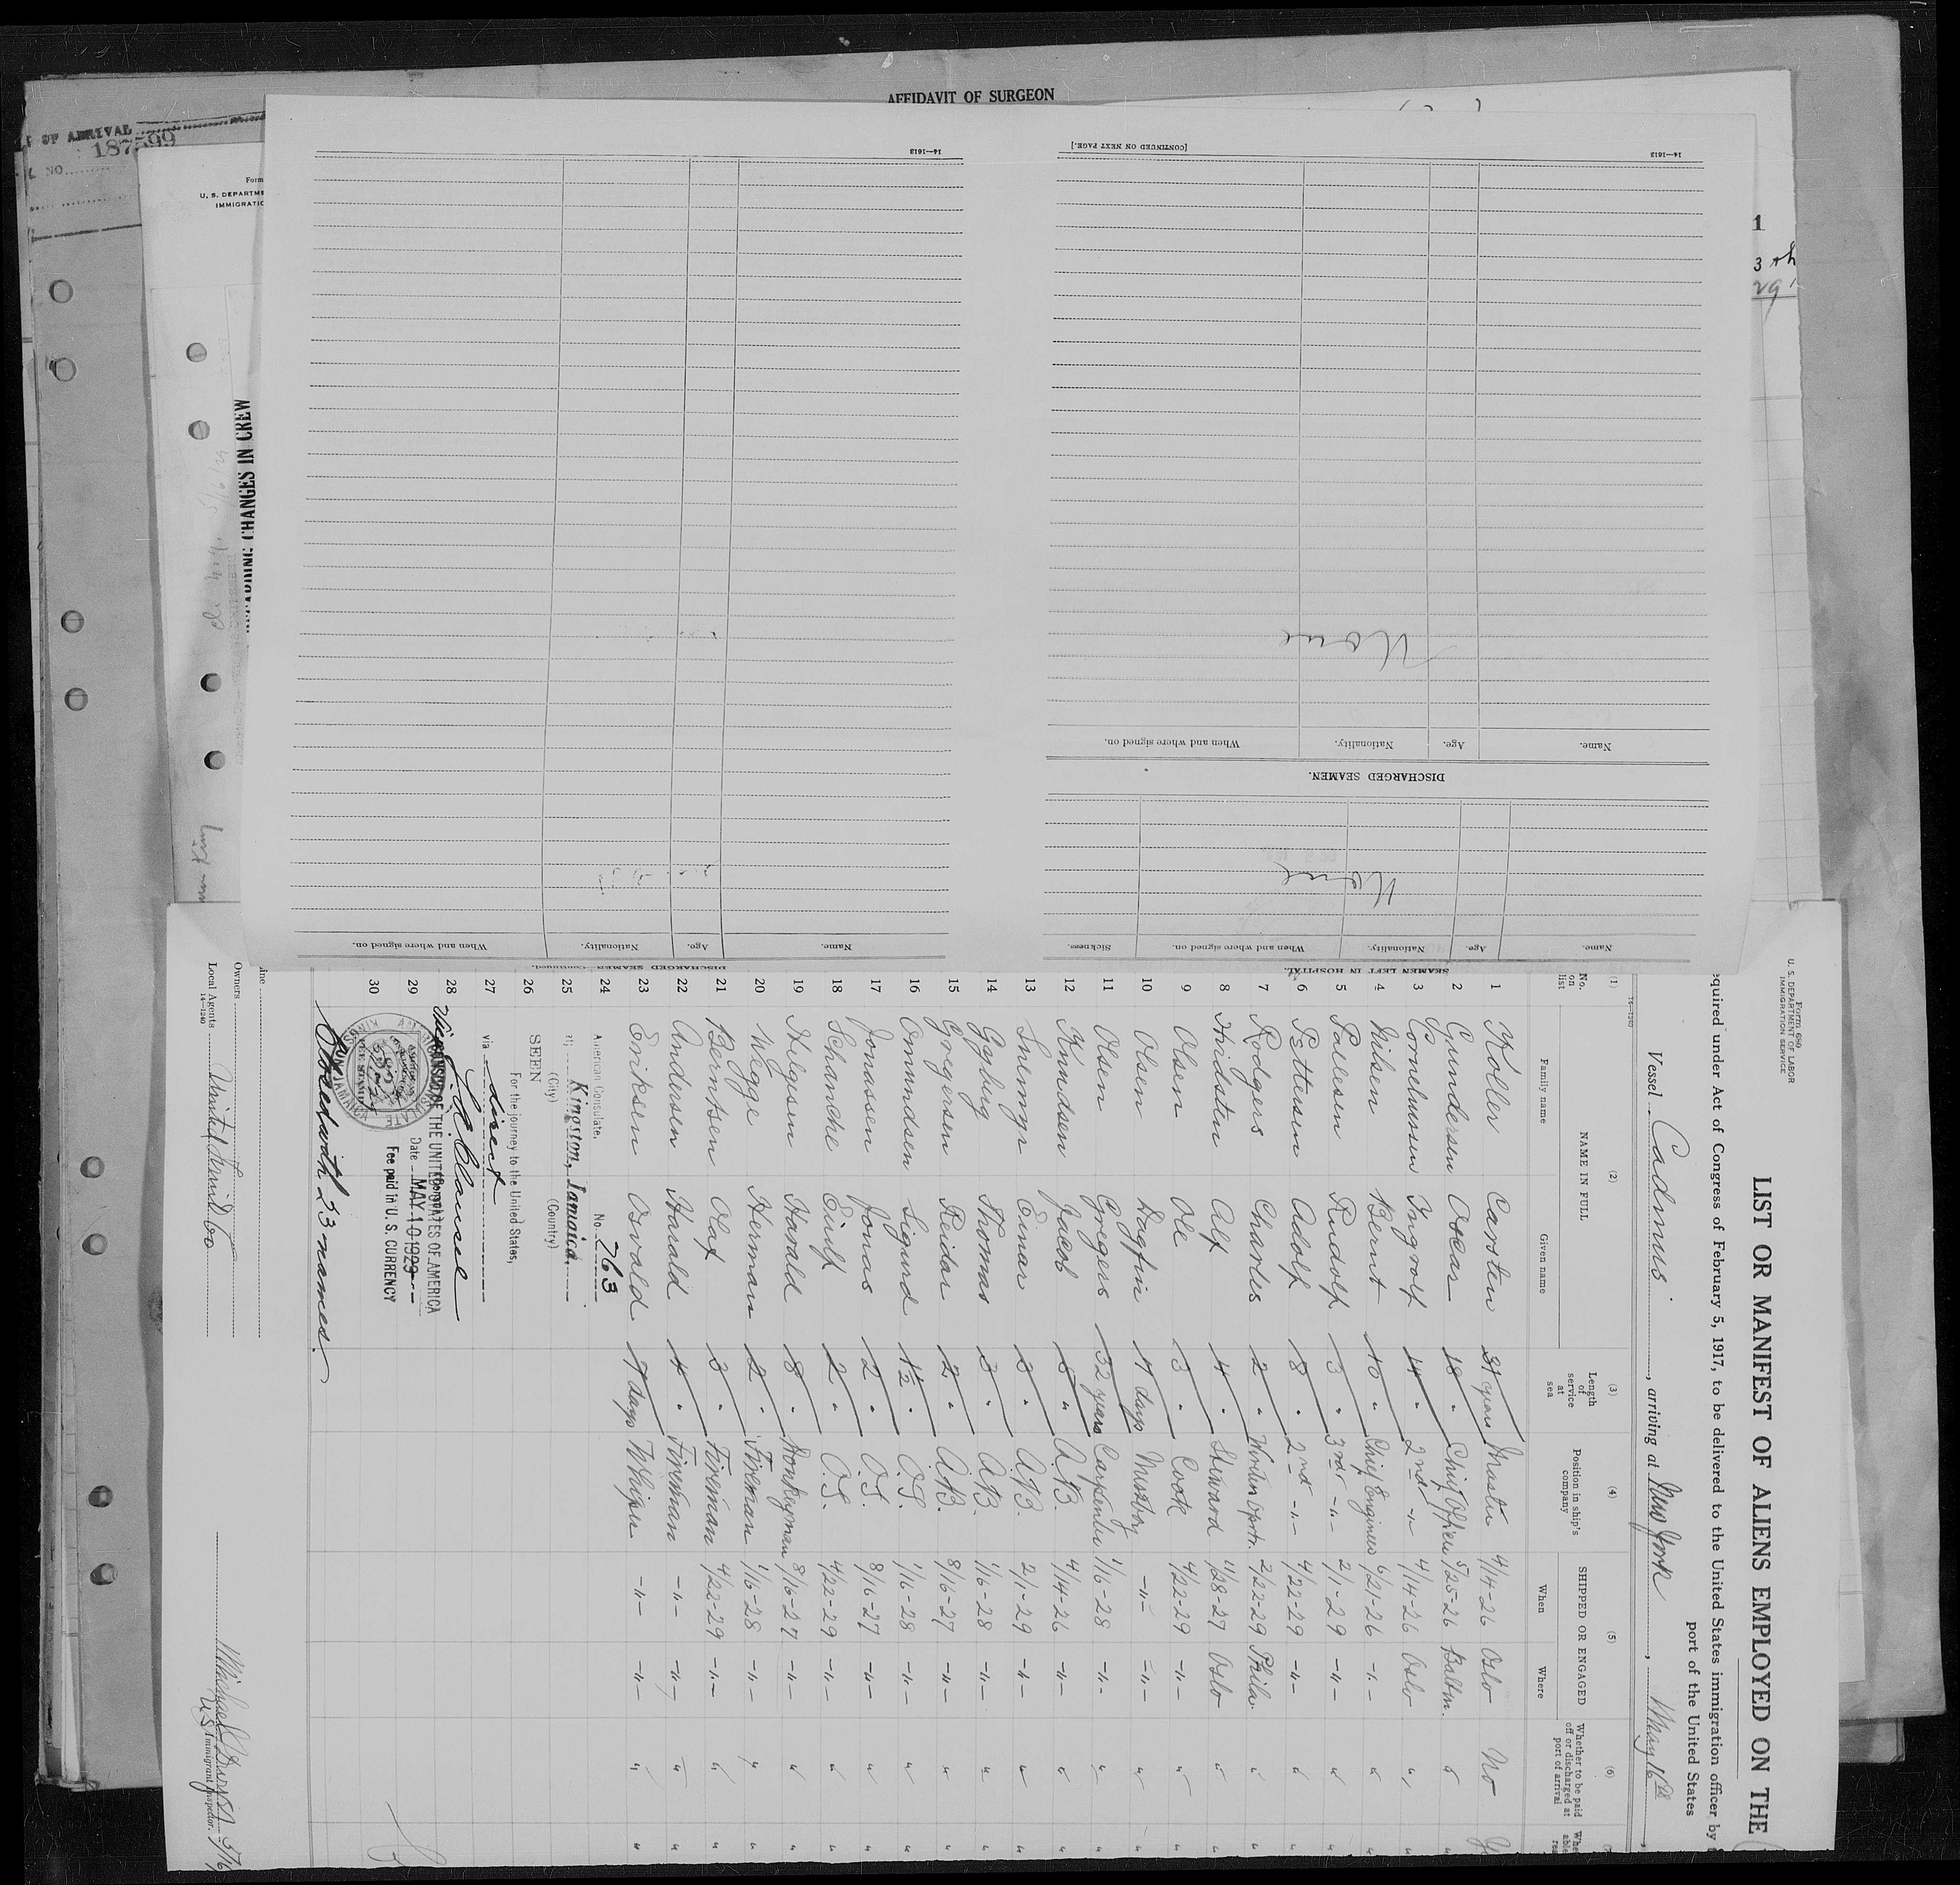 AFFIDAVIT OF SURGEON
OF ARRIVAL
187599
NO.
Form
U. S. DEPARTME
IMMIGRATIO
CHANGES IN CREW
1
3 th
29
14—1613
[CONTINUED ON NEXT PAGE.]
14—1613
None
Name. Age. Nationality. When and where signed on.
DISCHARGED SEAMEN.
None
Name. Age. Nationality. When and where signed on. Sickness.
SEAMEN LEFT IN HOSPITAL.
Name. Age. Nationality. When and where signed on.
DISCHARGED SEAMEN—Continued.
Form 680
U. S. DEPARTMENT OF LABOR
IMMIGRATION SERVICE
LIST OR MANIFEST OF ALIENS EMPLOYED ON THE
equired under Act of Congress of February 5, 1917, to be delivered to the United States immigration officer by
port of the United States
Vessel Cadmus, arriving at New York, May 16th
14—1240
(1) (2) (3) (4) (5) (6) (7)
No. on list NAME IN FULL Length of service at sea Position in ship's company SHIPPED OR ENGAGED Whether to be paid off or discharged at port of arrival
Family name Given name When Where
1 Koller Carsten 31 years Master 4/14-26 Oslo No
2 Gundersen Oscar 18 " Chief Officer 5/25-26 Baltm. "
3 Corneliussen Ingvolf 14 " 2nd -"- 4/14-26 Oslo "
4 Nilsen Bernt 10 " Chief Engineer 6/21-26 -"- "
5 Pallesen Rudolf 3 " 3rd -"- 2/1-29 -"- "
6 Pettersen Adolf 8 " 2nd -"- 4/22-29 -"- "
7 Rodgers Charles 2 " Wireless Optr. 2/22-29 Phila. "
8 Hirdsten Alf 4 " Steward 1/28-27 Oslo "
9 Olsen Ole 3 " Cook 4/22-29 -"- "
10 Olsen Dagfin 17 days Messboy -"- -"- "
11 Olsen Gregers 32 years Carpenter 1/16-28 -"- "
12 Knudsen Jacob 6 " A.B. 4/14-26 -"- "
13 Einar 8 " A.B. 2/1-29 -"- "
14 Thomas 3 " A.B. 1/16-28 -"- "
15 Gregersen Reidar 2 " A.B. 8/16-27 -"- "
16 Omundsen Sigurd 1½ " O.S. 1/16-28 -"- "
17 Jonassen Jonas 2 " O.S. 8/16-27 -"- "
18 Schanche Eiulf 2 " O.S. 4/22-29 -"- "
19 Helgesen Harald 8 " Donkeyman 8/16-27 -"- "
20 Wegge Herman 2 " Fireman 1/16-28 -"- "
21 Berntsen Olaf 3 " Fireman 4/22-29 -"- "
22 Andersen Harald 4 " Fireman -"- -"- "
23 Eriksen Osvald 17 days Wiper -"- -"- "
24 American Consulate, No. 763
25 at Kingston, Jamaica.
(City) (Country)
26 SEEN
For the journey to the United States,
27 via direct
28
VICE CONSUL OF THE UNITED STATES OF AMERICA
29 Date MAY 10 1929
30 Fee paid in U. S. CURRENCY
Closed with 23 names.
Line
Owners
Local Agents United Fruit Co
14—1240
Immigrant Inspector.